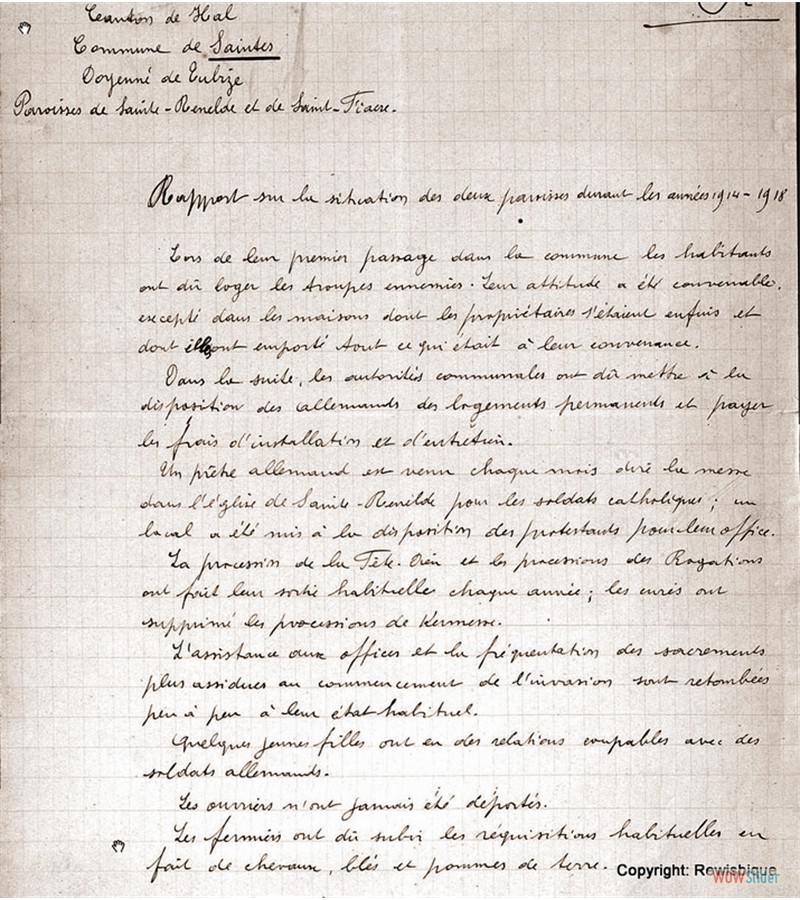 Canton de Hal
Commune de Saintes
Doyenné de Tubize
Paroisses de Sainte-Renelde et de Saint-Fiacre.
Rapport sur la situation des deux paroisses durant les années 1914-1918
Lors de leur premier passage dans la commune les habitants
ont dû loger les troupes ennemies. Leur attitude a été convenable,
excepté dans les maisons dont les propriétaires s'étaient enfuis et
dont ils ont emporté tout ce qui était à leur convenance.
Dans la suite, les autorités communales ont dû mettre à la
disposition des allemands des logements permanents et payer
les frais d'installation et d'entretien.
Un prêtre allemand est venu chaque mois dire la messe
dans l'église de Sainte-Renelde pour les soldats catholiques; un
local a été mis à la disposition des protestants pour leur office.
La procession de la Fête-Dieu et les processions des Rogations
ont fait leur sortie habituelle chaque année; les curés ont
supprimé les processions de Kermesse.
L'assistance aux offices et la fréquentation des sacrements
plus assidues au commencement de l'invasion sont retombées
peu à peu à leur état habituel.
Quelques jeunes filles ont eu des relations coupables avec des
soldats allemands.
Les ouvriers n'ont jamais été déportés.
Les fermiers ont dû subir les réquisitions habituelles en
fait de chevaux, blés et pommes de terre.
Copyright: Rewisbique
WOWSlider